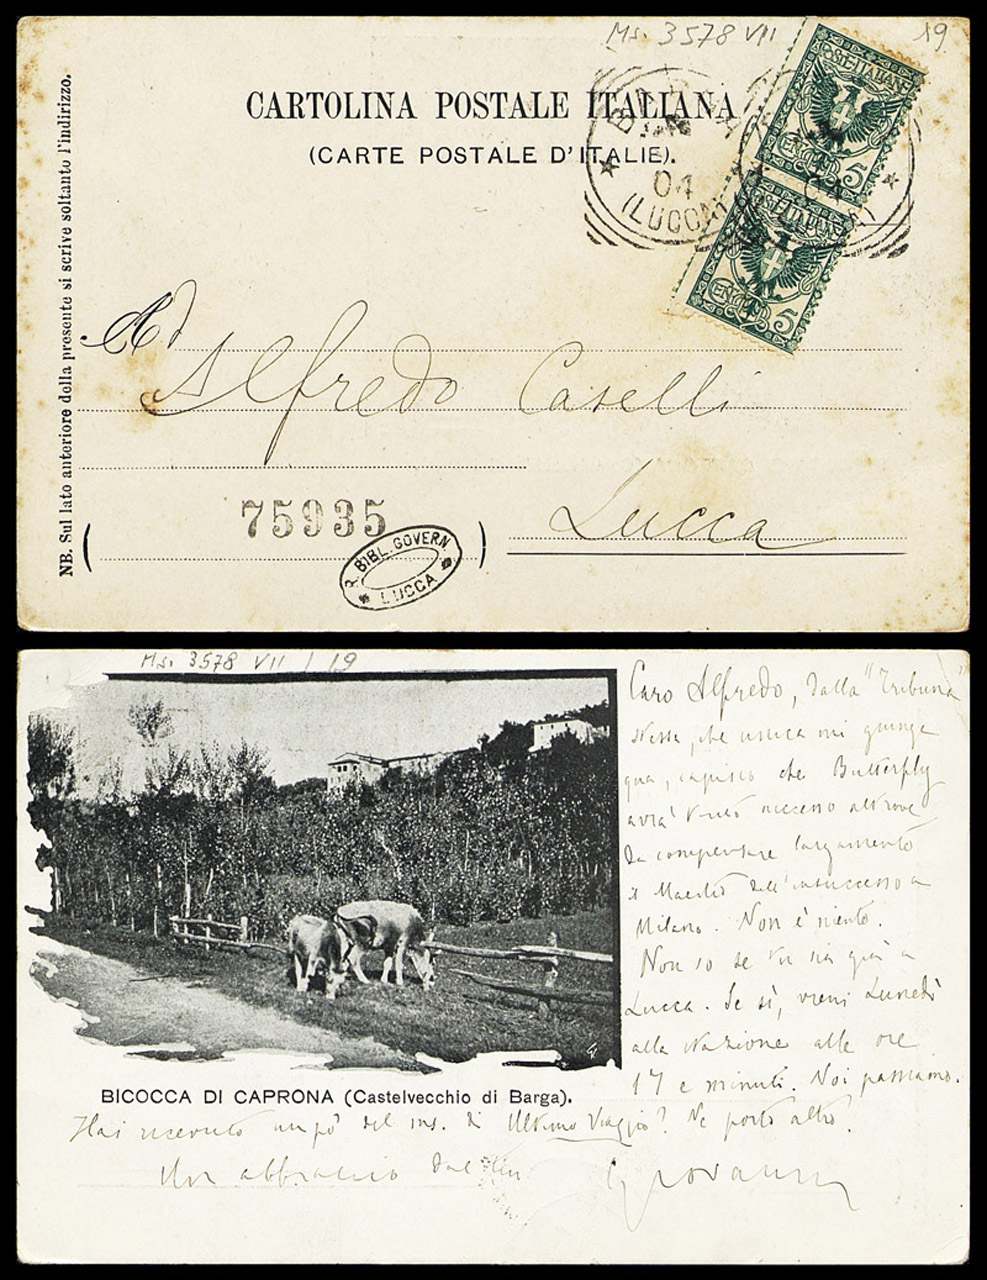 Ms. 3578 VII
19
CARTOLINA POSTALE ITALIANA
(CARTE POSTALE D'ITALIE).
NB. Sul lato anteriore della presente si scrive soltanto l'indirizzo.
POSTE ITALIANE
CENT. 5
POSTE ITALIANE
CENT. 5
04
(LUCCA)
Ad
Alfredo Caselli
Lucca
75935
R. BIBL. GOVERN.
LUCCA
Ms. 3578 VII / 19
Caro Alfredo, dalla "Tribuna"
stessa, che unica mi giunge
qua, capisco che Butterfly
avrà tanto successo altrove
da compensare largamente
il Maestro dell'insuccesso a
Milano. Non è niente.
Non so se tu sia già a
Lucca. Se sì, vieni Lunedì
alla stazione alle ore
17 e minuti. Noi passiamo.
BICOCCA DI CAPRONA (Castelvecchio di Barga).
Hai ricevuto un pò del ms. di Ultimo Viaggio? Ne porto altro.
Un abbraccio dal tuo
Giovanni